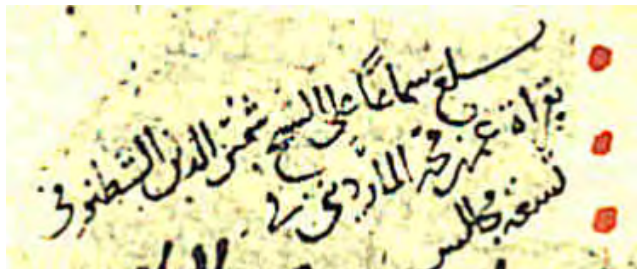 بلغ سماعا على الشيخ شمس الدين الشطنوفي
بقراة عمر بن محمد المارديني في
تسعة مجالس